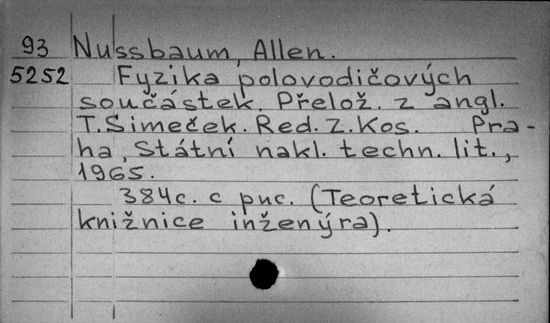 93 Nussbaum, Allen.
5252 Fyzika polovodičových
součástek. Přelož. z angl.
T. Šimeček. Red. Z. Kos. Pra-
ha, Státní nakl. techn. lit.,
1965.
384с. с рис. (Teoretická
knižnice inženýra).